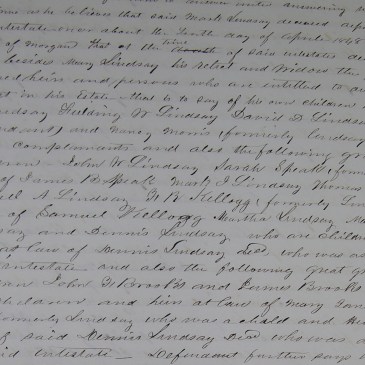 who believes that said Mark Lindsay deceased
intestate on or about the Tenth day of April 1848
of Morgan that at the time of said intestates
besides Mary Lindsay his Relict and Widow the
and persons who are entitled to
in his Estate that is to say of his own children
Lindsay Fielding W Lindsay David D Lindsay
and Nancy Morris (formerly Lindsay
Complainants and also the following
John W Lindsay Sarah Speak (formerly
of James B Speak Mark J Lindsay Thomas
A Lindsay Kellogg (formerly
of Samuel Kellogg Martha Lindsay
and Dennis Lindsay who are children
at Law of Dennis Lindsay Decd who was
intestate and also the following great
John H Brooks and James Brooks
children and heirs at Law of Mary
formerly Lindsay who was a child and
of said Dennis Lindsay Decd who was
said intestate Defendant further says